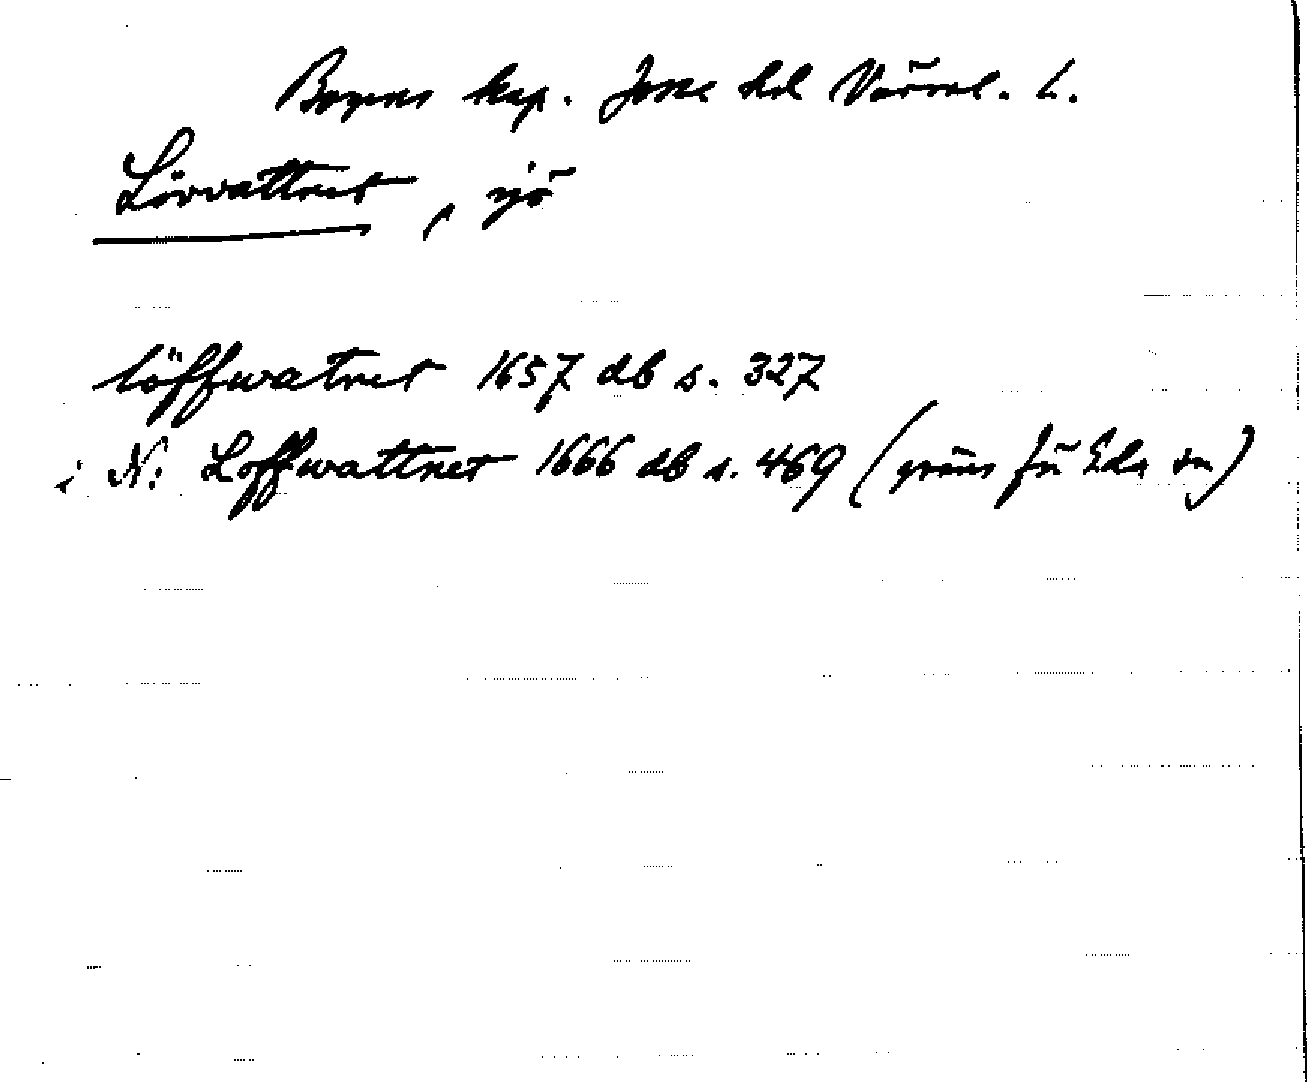 Bogens kap. Jösse hd Värml. l.
Lövvattnet, sjö
löffwatnet 1657 db s. 327
i N: Loffwattnet 1666 db s. 469 (gräns fr Eda sn)